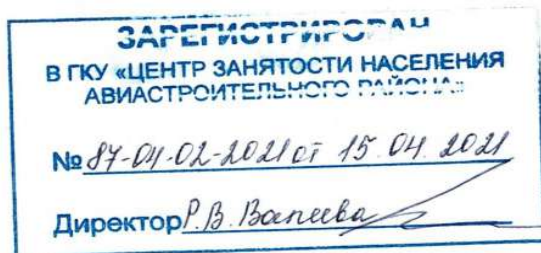 ЗАРЕГИСТРИРОВАН
В ГКУ «ЦЕНТР ЗАНЯТОСТИ НАСЕЛЕНИЯ
АВИАСТРОИТЕЛЬНОГО РАЙОНА»
№ 87-04-02-2021 от 15.04.2021
Директор Р.В.